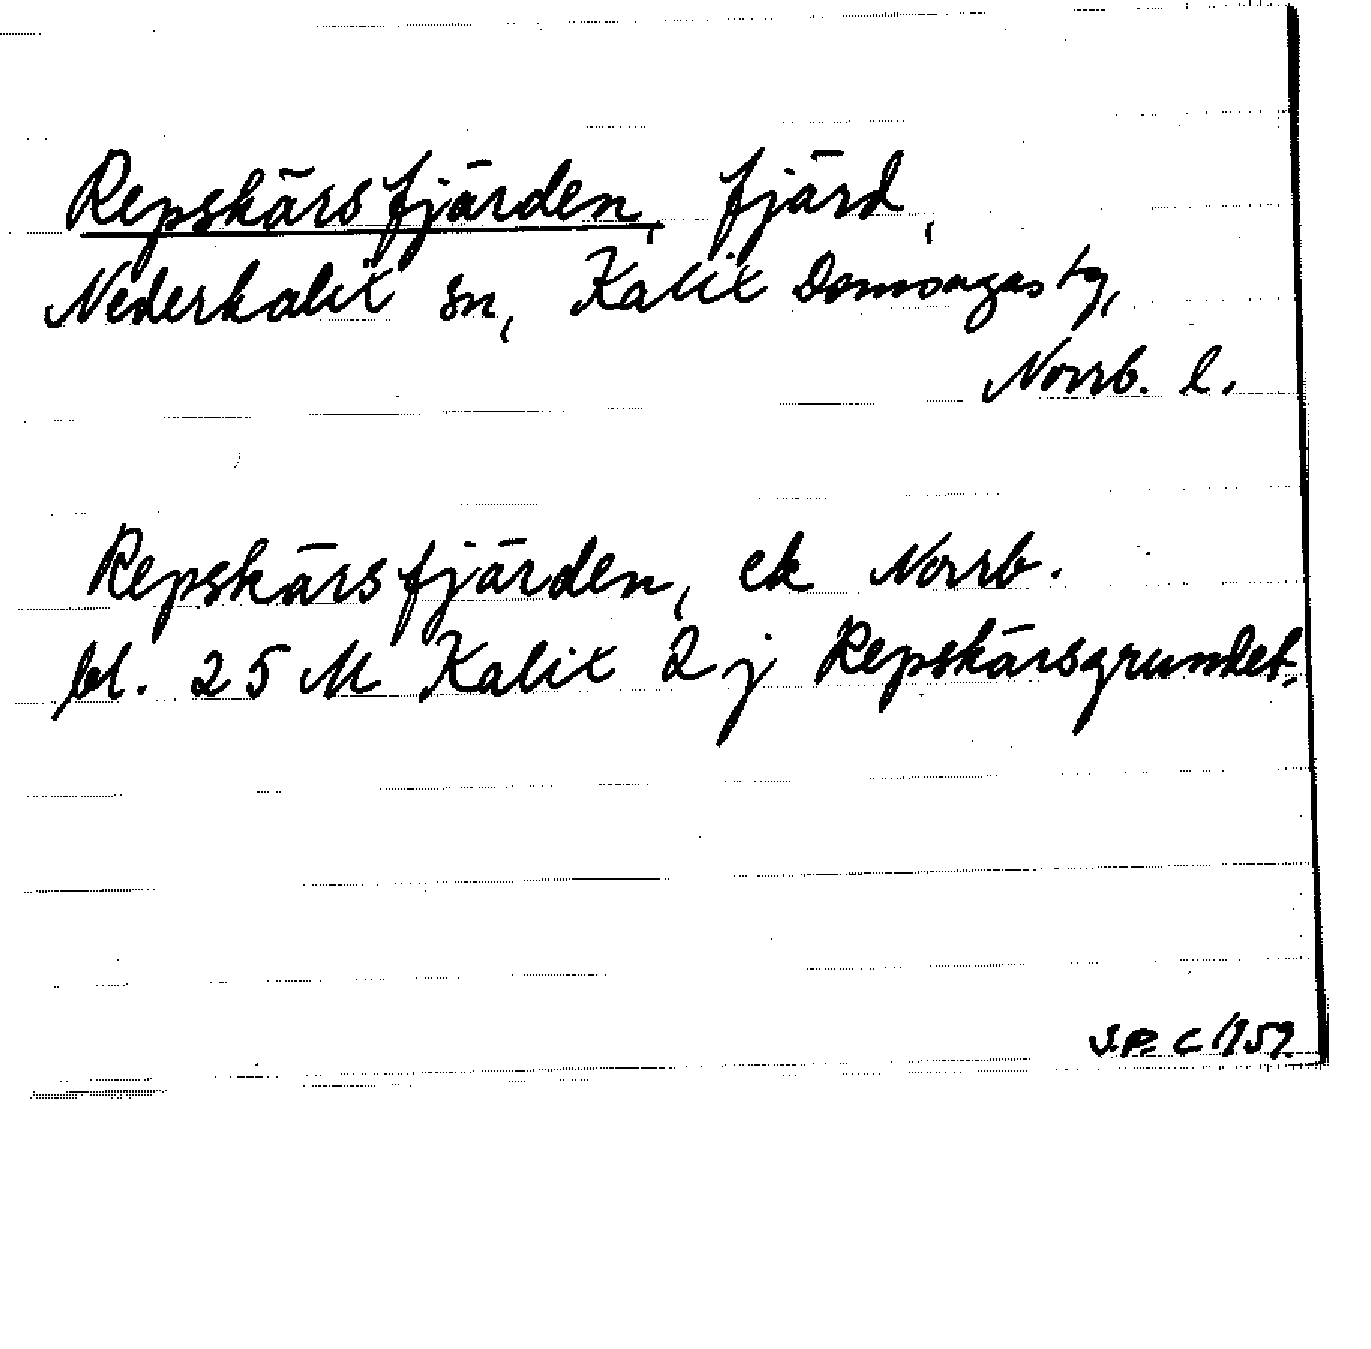 Repskärsfjärden, fjärd,
Nederkalix sn, Kalix domsagas tg,
Norrb. l.
Repskärsfjärden, ek Norrb.
bl. 25 M Kalix 2 j Repskärsgrundet.
J.P. C 1959